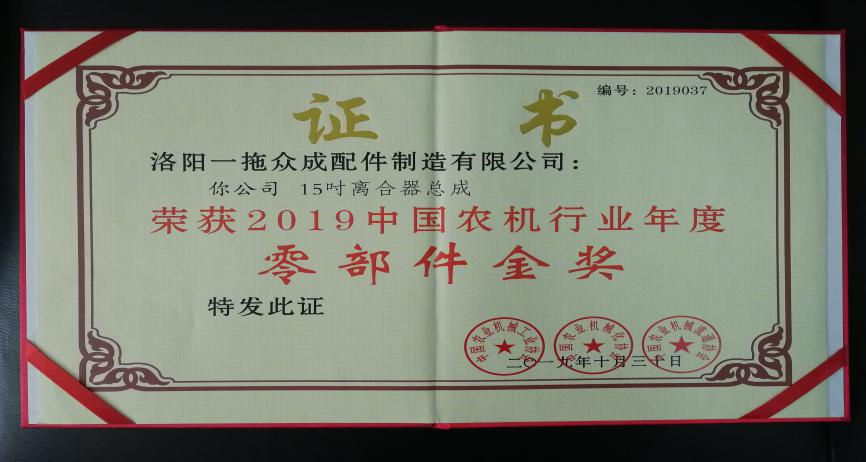 编号：2019037
证书
洛阳一拖众成配件制造有限公司：
你公司 15吋离合器总成
荣获2019中国农机行业年度
零部件金奖
特发此证
中国农业机械工业协会
中国农业机械化协会
中国农业机械流通协会
二〇一九年十月三十日